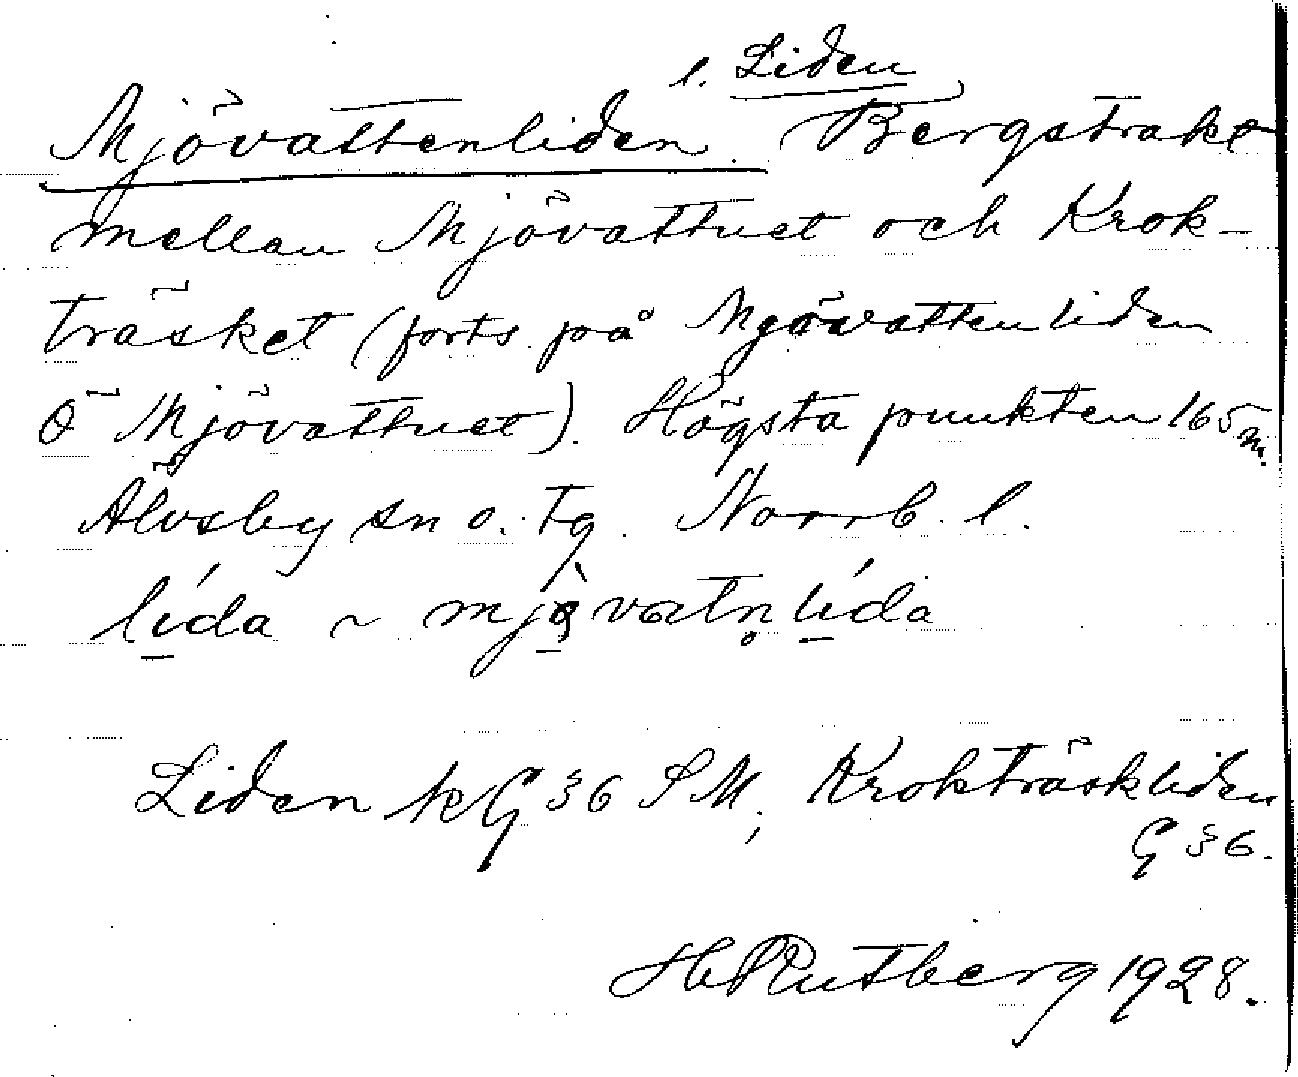 l. Liden
Mjövattenliden. Bergstrakt
mellan Mjövattnet och Krok-
träsket (forts. på Mjövattenliden
Ö Mjövattnet). Högsta punkten 165 m.
Älvsby sn o. tg. Norrb. l.
lída ~ mjǫ̀vatn̥lída
Liden kG 36 SM; Krokträskliden
G 36.
H Rutberg 1928.